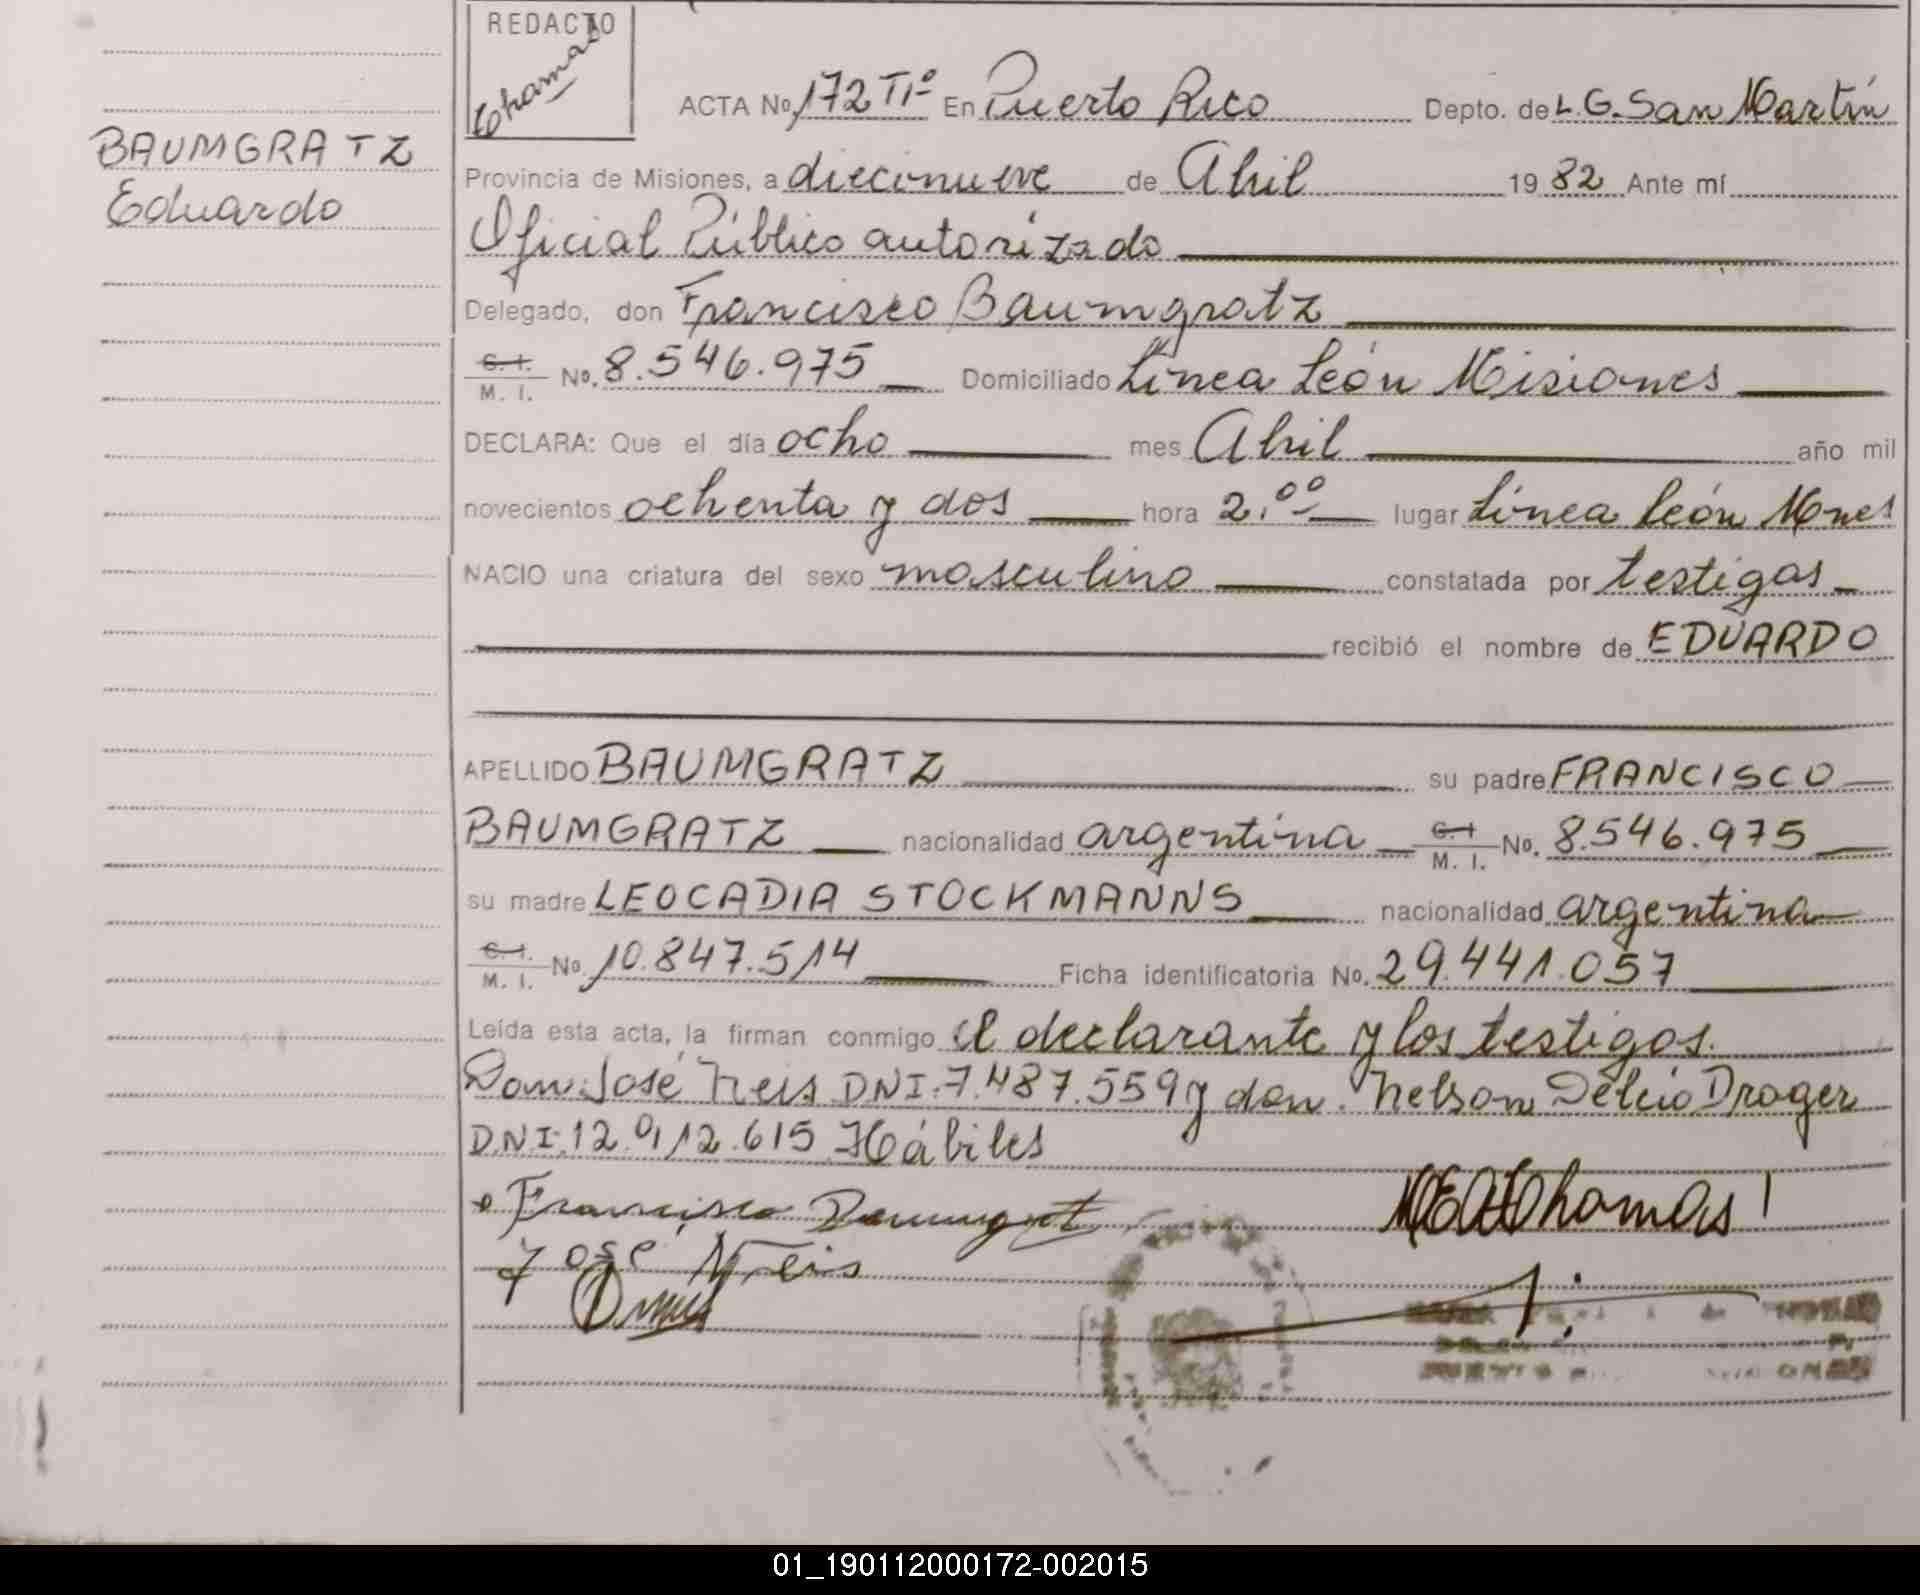 REDACTO
Thomas
BAUMGRATZ
Eduardo
ACTA No. 172 TIº En Puerto Rico Depto. de L.G. San Martín
Provincia de Misiones, a diecinueve de Abril 1982 Ante mí
Oficial Público autorizado
Delegado, don Francisco Baumgratz
C. I. M. I. No. 8.546.975 Domiciliado Línea León Misiones
DECLARA: Que el día ocho mes Abril año mil
novecientos ochenta y dos hora 2.ºº lugar Línea León Mnes
NACIO una criatura del sexo masculino constatada por testigos
recibió el nombre de EDUARDO
APELLIDO BAUMGRATZ su padre FRANCISCO
BAUMGRATZ nacionalidad argentina C. I M. I. No. 8.546.975
su madre LEOCADIA STOCKMANNS nacionalidad argentina
C. I. M. I. No. 10.847.514 Ficha identificatoria No. 29.441.057
Leída esta acta, la firman conmigo el declarante y los testigos.
Don José Neis DNI. 7.487.559 y don Nelson Delcio Drager
D.N.I. 12.912.615 Hábiles
Francisco Baumgratz
José Neis
01_190112000172-002015